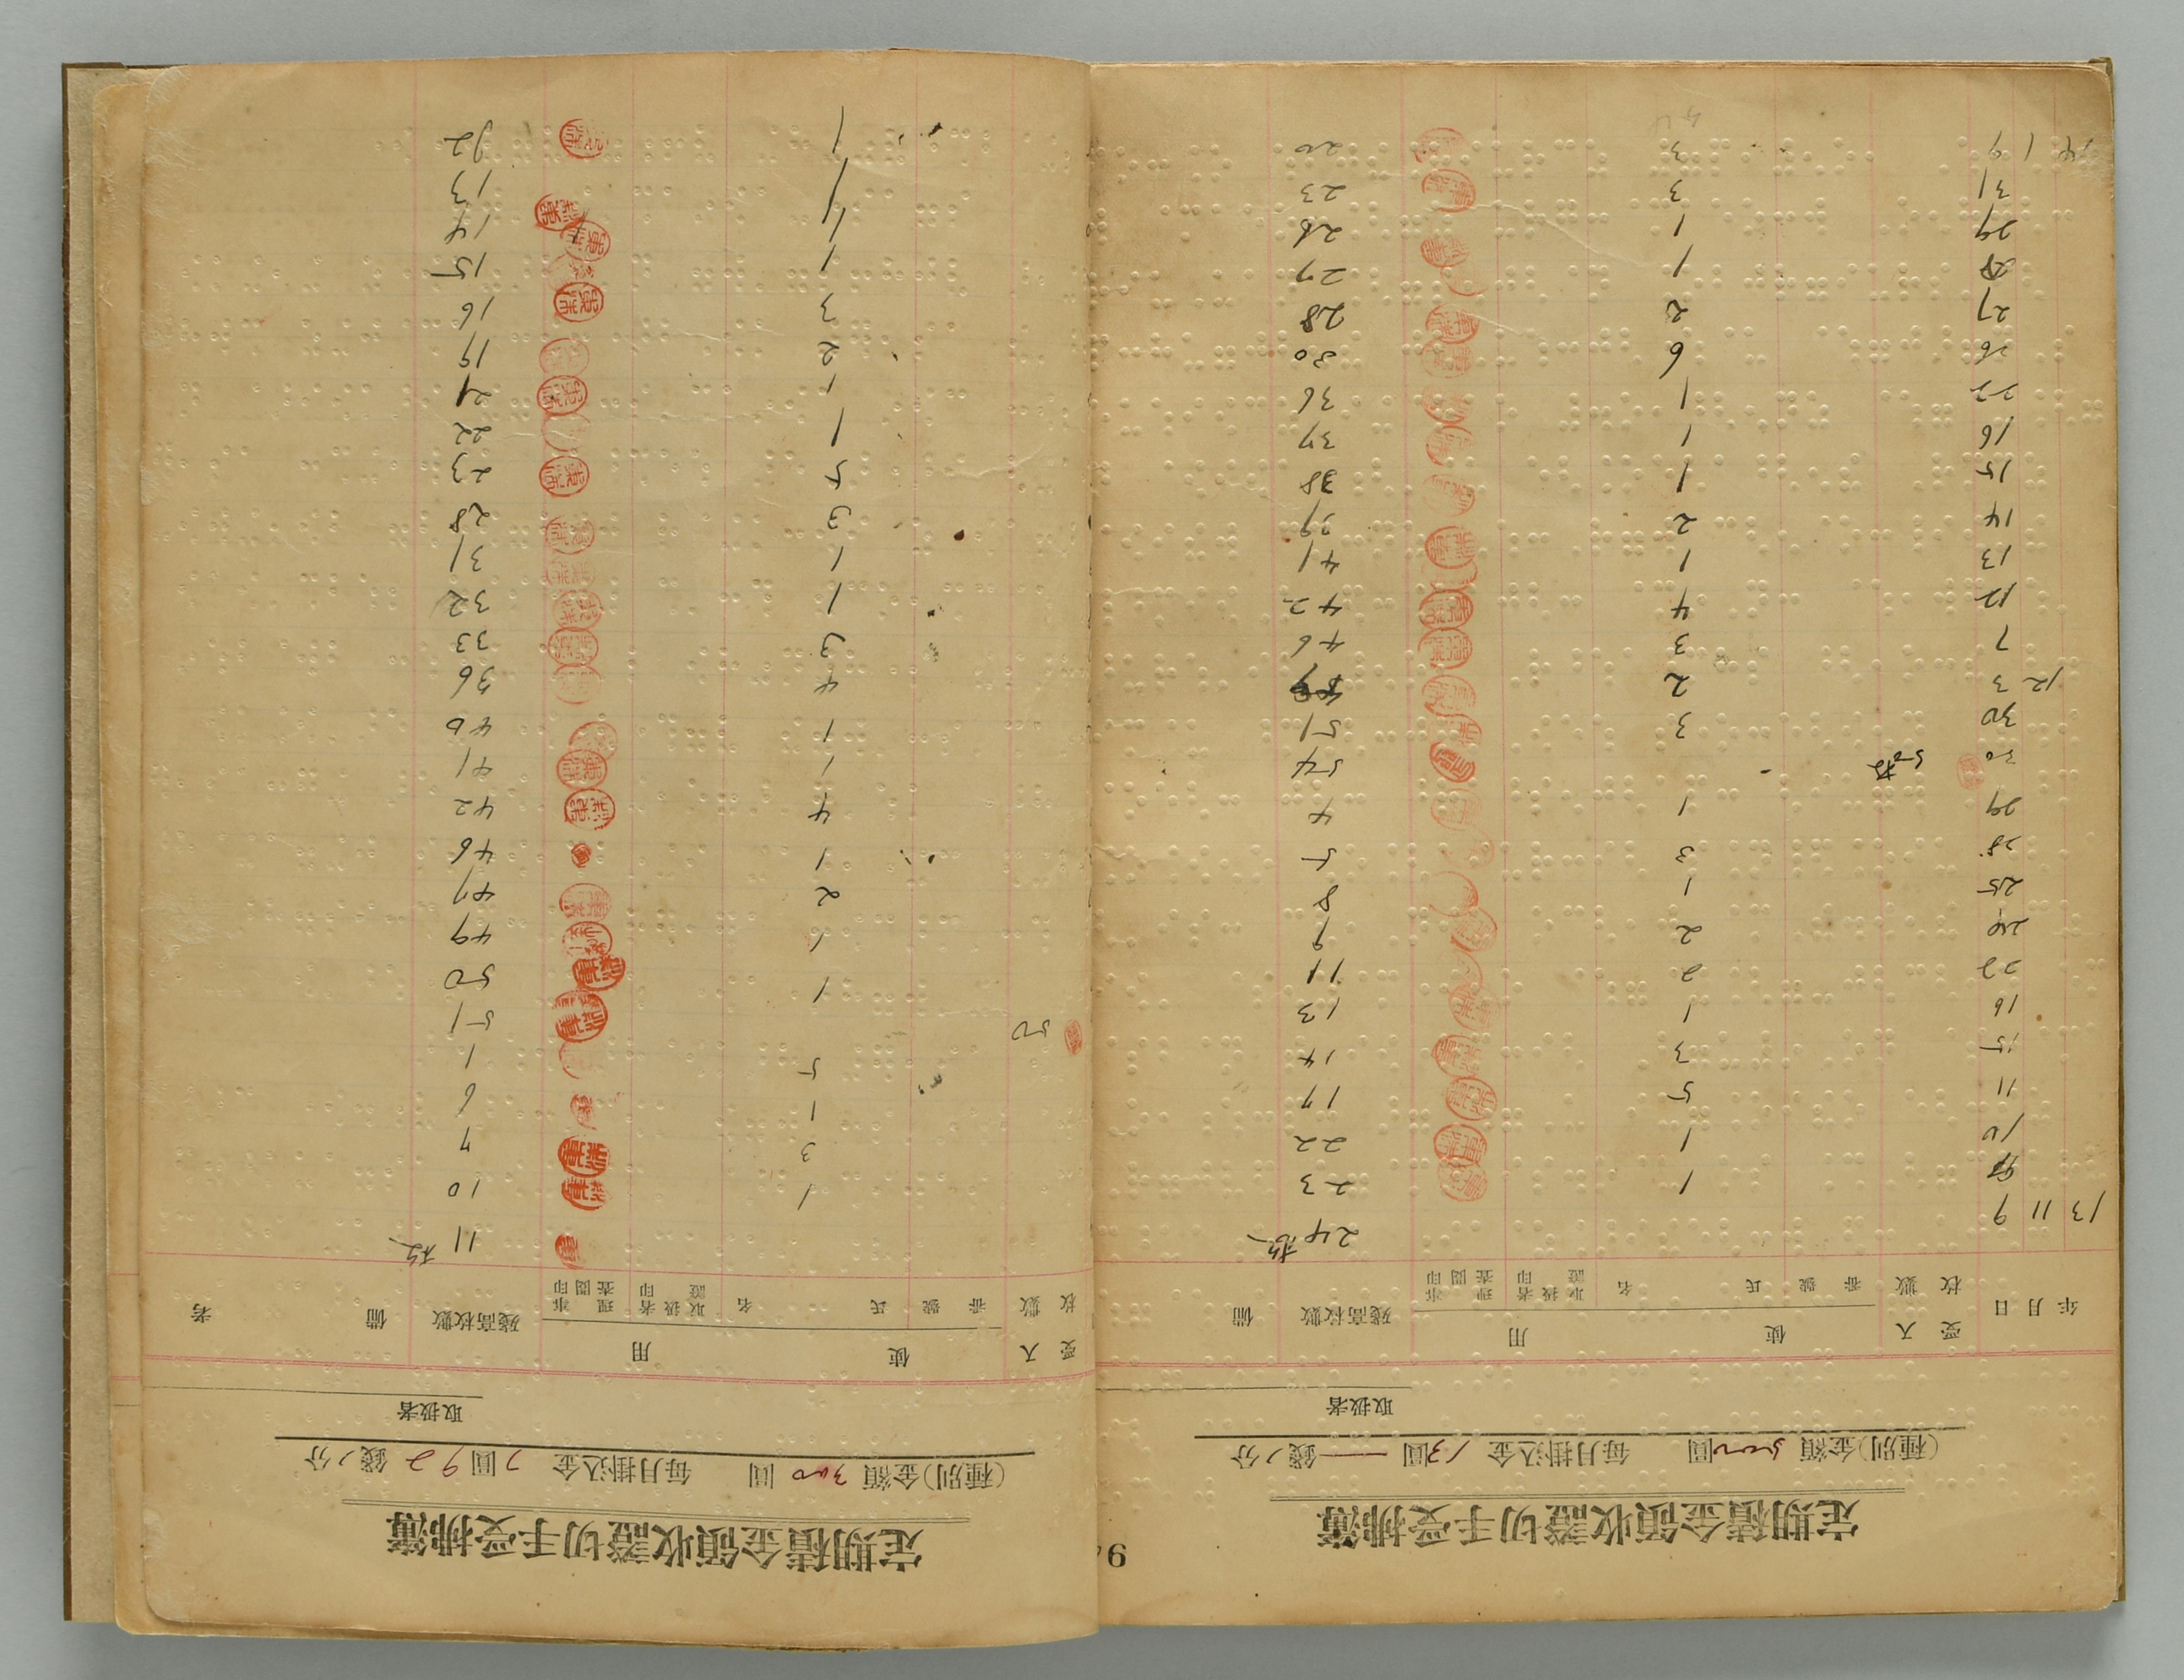 定期積金領收證切手受拂簿
(種別)金額 500圓 每月掛込金 13圓 — 錢ノ分
取扱者
年 月 日 受入枚數 使用 番號 氏名 取扱者證印 理事查閱印 殘高枚數 備
13 11 9 24枚
1 23
10 1 22
11 5 17
15 3 14
16 1 13
22 2 11
24 2 9
25 1 8
28 3 5
29 1 4
30 50枚 54
30 3 51
12 3 2 49
7 3 46
12 4 42
13 1 41
14 2 39
15 1 38
16 1 37
22 1 36
26 6 30
27 2 28
28 1 27
29 1 26
31 3 23
14 1 9 3 20
9
定期積金領收證切手受拂簿
(種別)金額 300圓 每月掛込金 7圓92錢ノ分
取扱者
受入枚數 使用 番號 氏名 取扱者證印 理事查閱印 殘高枚數 備考
11枚
1 10
3 7
1 6
5 1
50 51
1 50
1 49
2 47
1 46
4 42
1 41
1 40
4 36
3 33
1 32
1 31
3 28
5 23
1 22
1 21
2 19
3 16
1 15
1 14
1 13
1 12